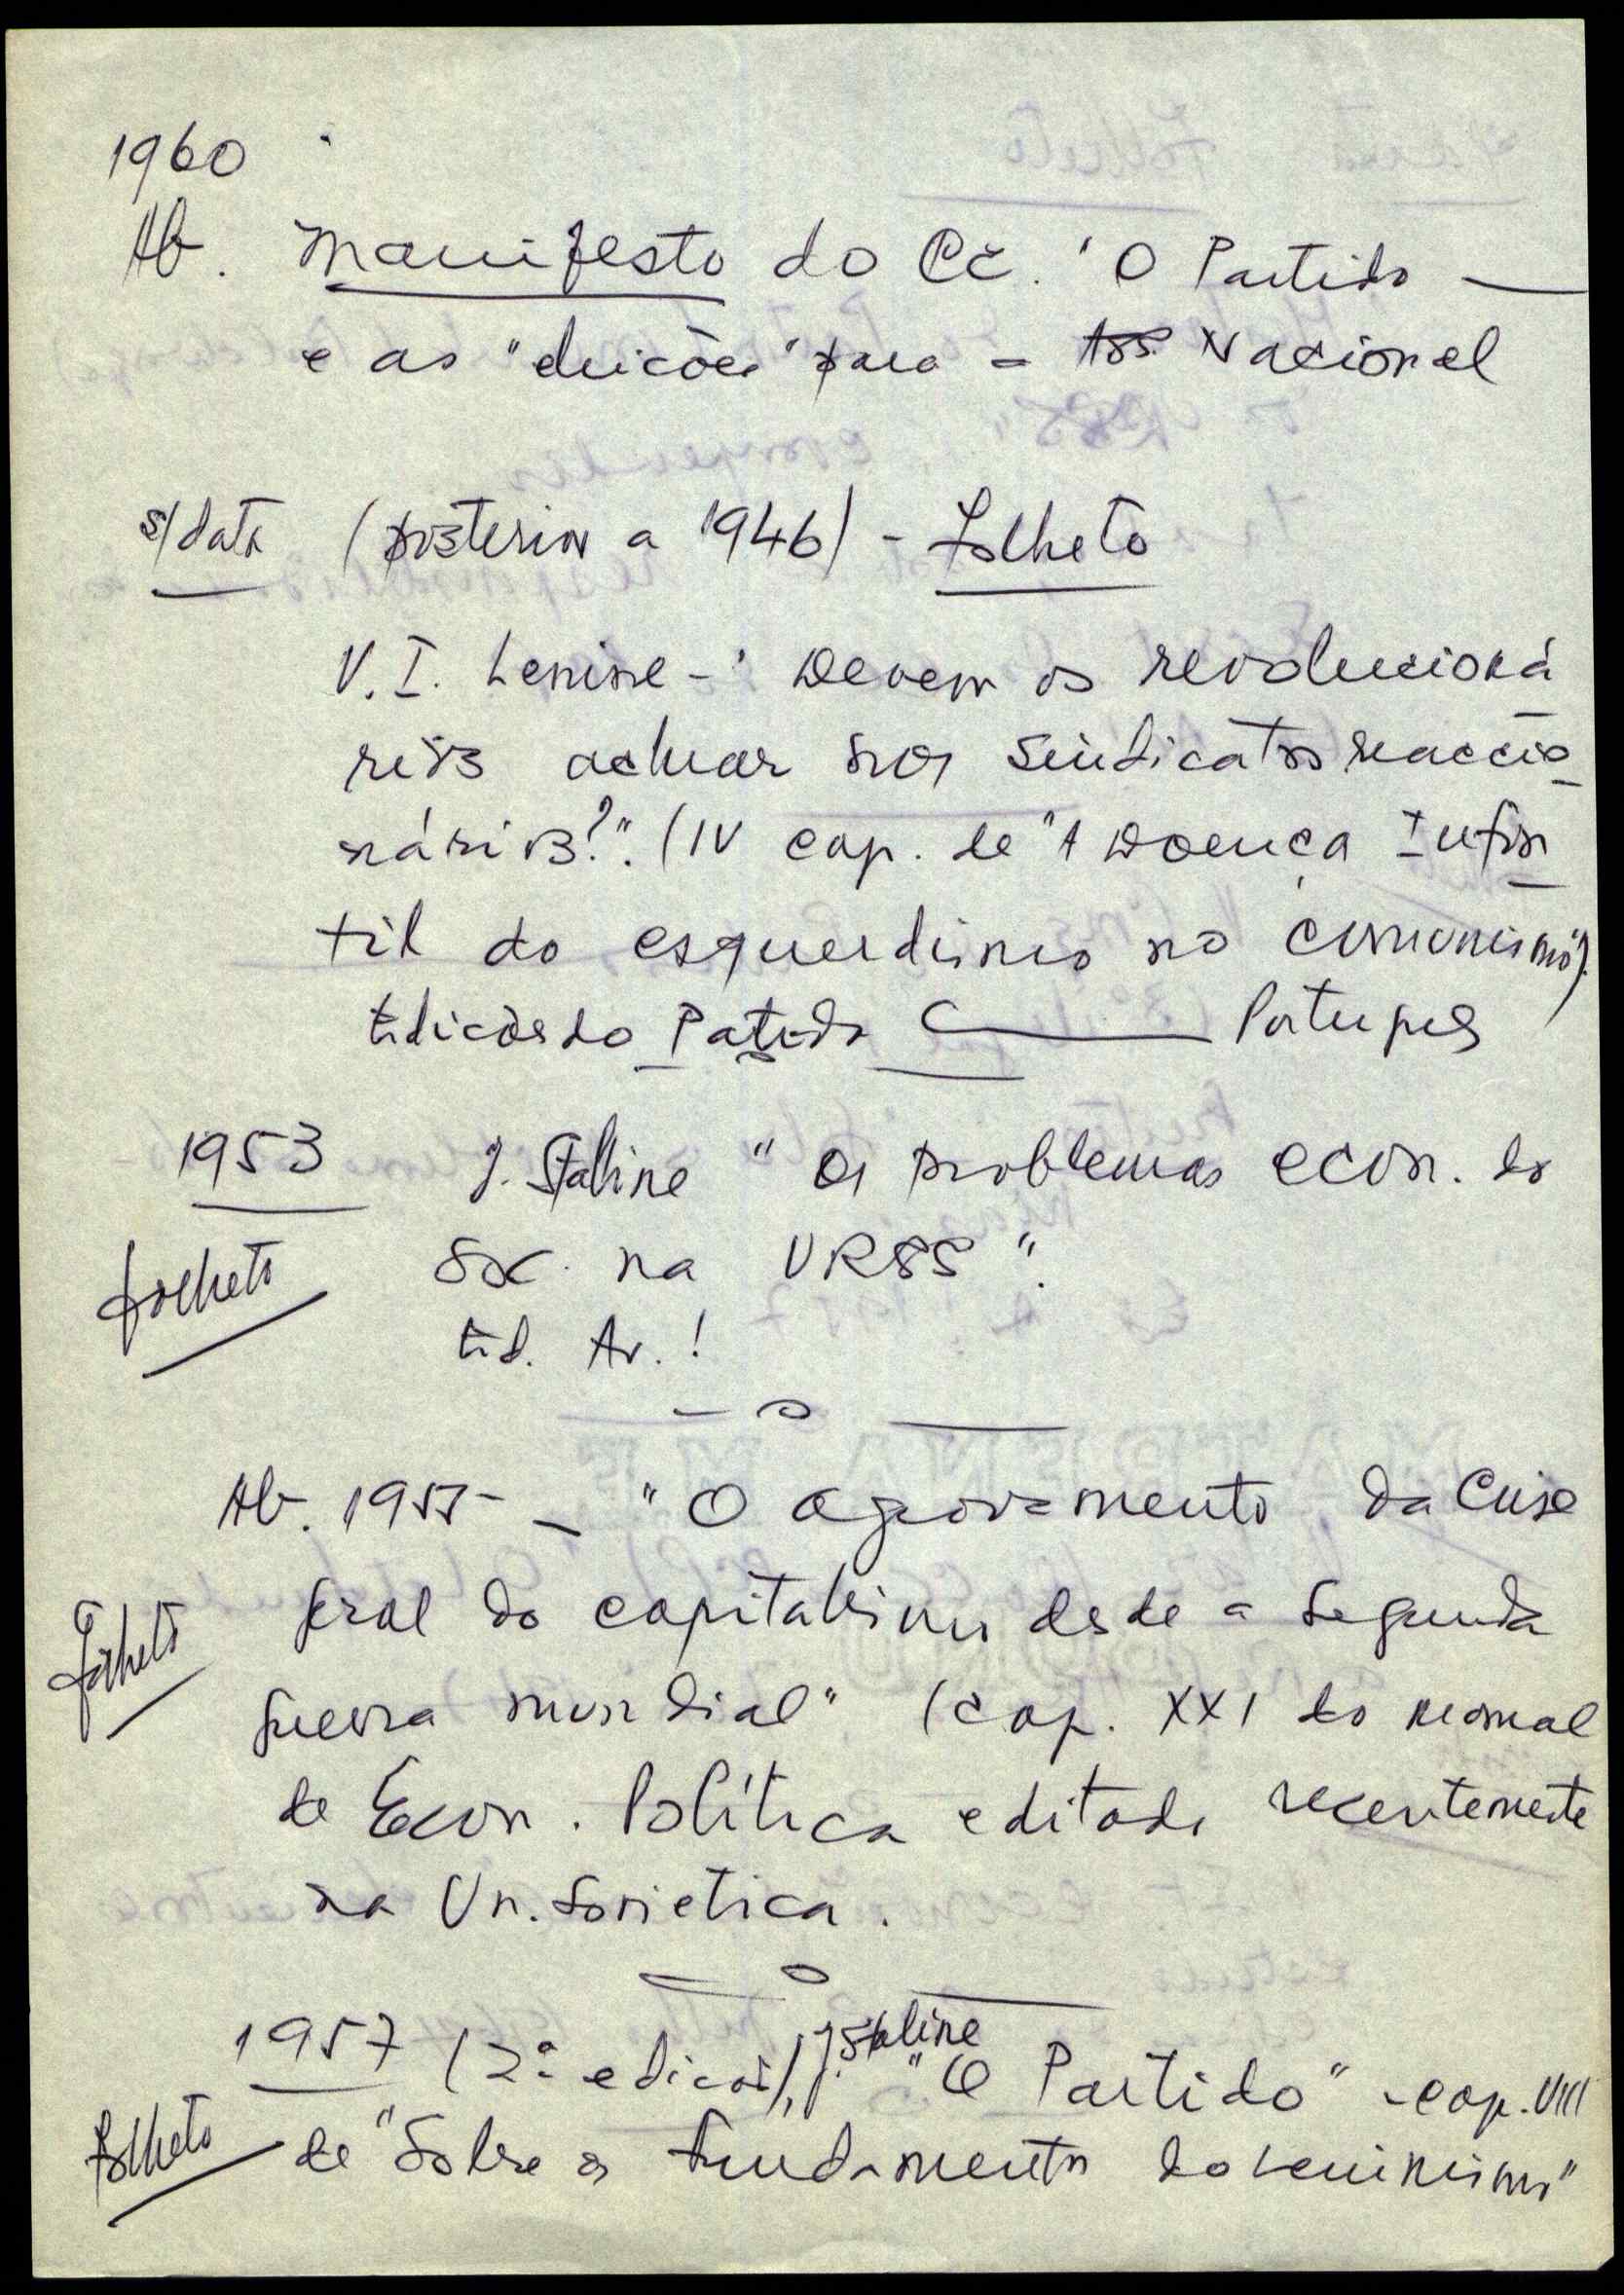 1960
Ab. Manifesto do CC. "O Partido —
e as "eleições" para a Ass. Nacional
s/data (posterior a 1946) - Folheto
V.I. Lenine - "Devem os revolucioná
rios actuar nos sindicatos reaccio
nários?". (IV cap. de "A Doença Infan
til do esquerdismo no comunismo").
Edições do Partido C——— Português
1953 J. Staline "Os problemas econ. do
Folheto Soc. na URSS".
Ed. Av.!
— o —
Ab. 1955 - "O agravamento da Crise
Folheto geral do capitalismo desde a Segunda
guerra mundial" (cap. XXI do manual
de Econ. Política editado recentemente
na Un. Sovietica.
— o —
1957 (2ª edição), J. Staline "O Partido" - cap. VIII
Folheto de "Sobre os fundamentos do leninismo"